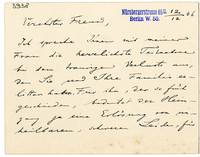 3328
Nürnbergerstrasse 65
Berlin W. 50.
12/12 06
Verehrter Freund,
Ich spreche Ihnen mit meiner
Frau die herzlichste Teilnahme
an dem traurigen Verluste aus,
den Sie und Ihre Familie er-
litten haben. Für ihn, der so früh
geschieden, bedeutet der Heim-
gang ja eine Erlösung von un-
heilbarem, schweren Leiden für